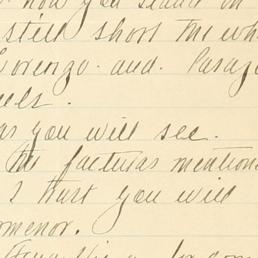 how you stand on
still short the wh
Lorenzo and Parag
els.
as you will see.
the facturas mention
I trust you will
pomenor.